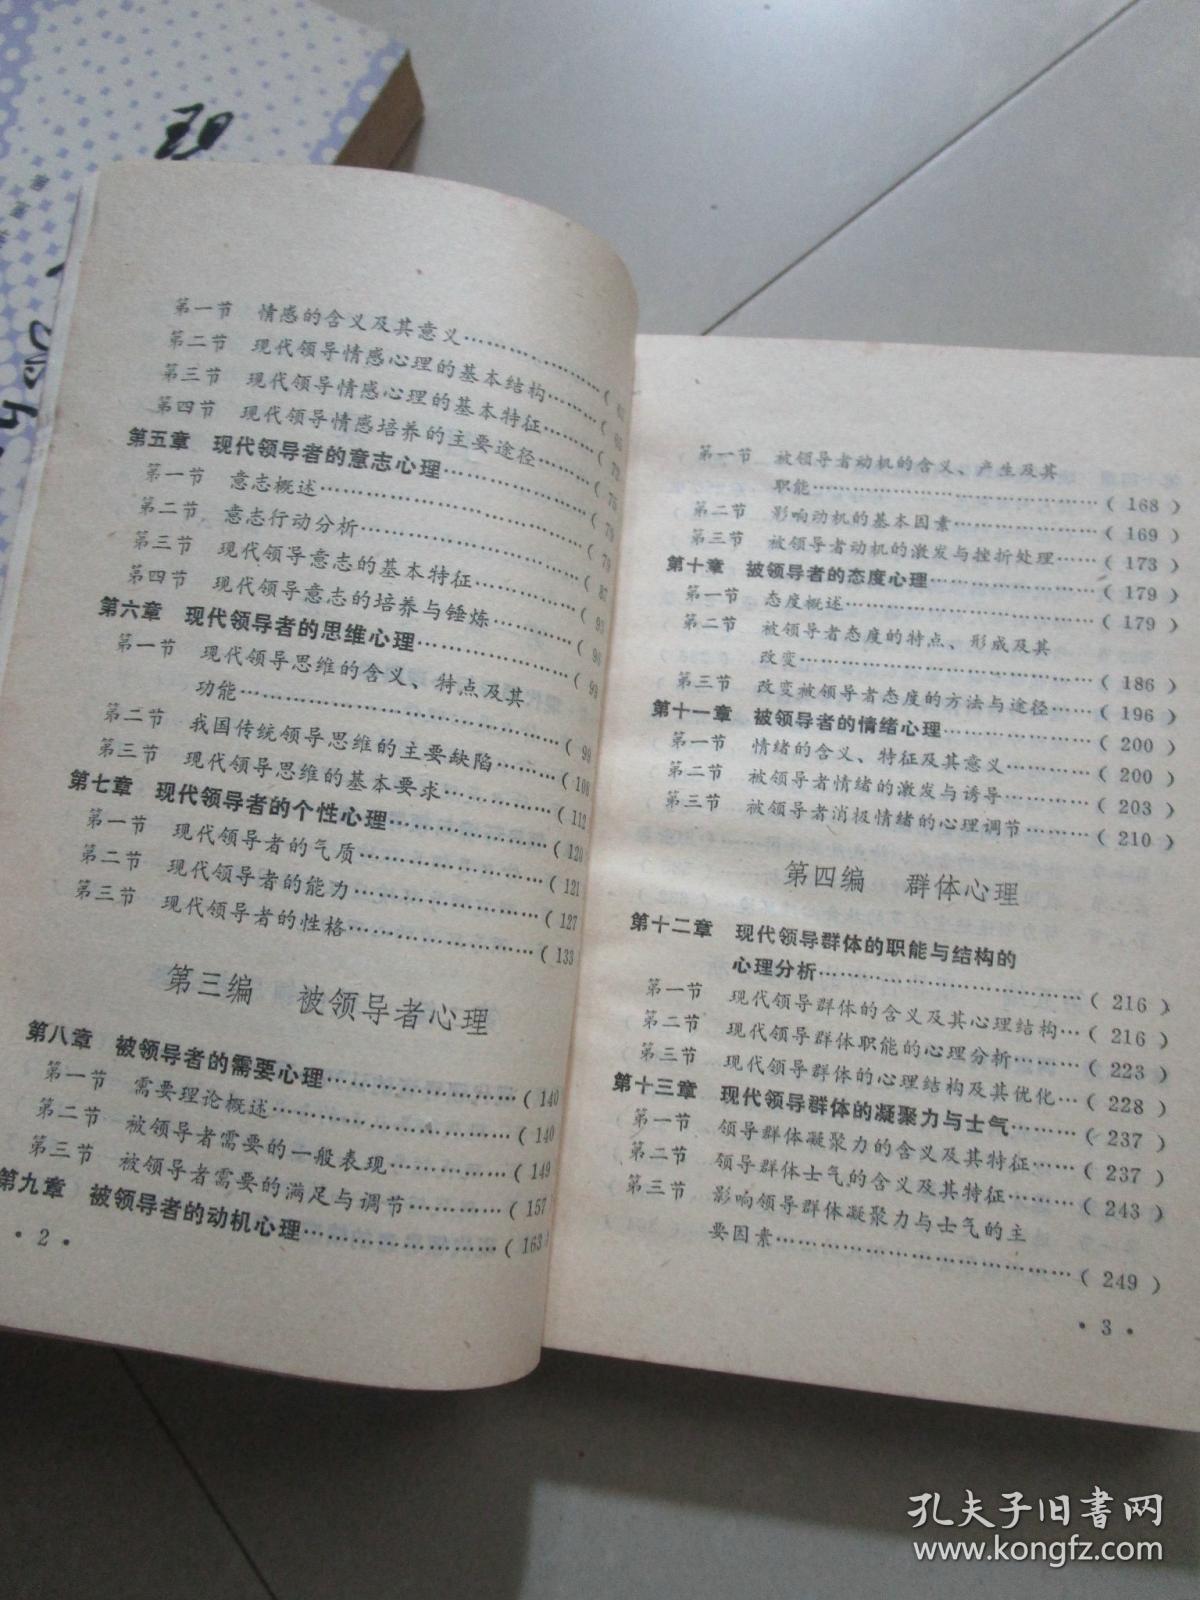 现
第一节 情感的含义及其意义
第二节 现代领导情感心理的基本结构
第三节 现代领导情感心理的基本特征
第四节 现代领导情感培养的主要途径
第五章 现代领导者的意志心理
第一节 意志概述
第二节 意志行动分析
第三节 现代领导意志的基本特征
第四节 现代领导意志的培养与锤炼
第六章 现代领导者的思维心理
第一节 现代领导思维的含义、特点及其
功能
第二节 我国传统领导思维的主要缺陷
第三节 现代领导思维的基本要求
第七章 现代领导者的个性心理……(120)
第一节 现代领导者的气质……(121)
第二节 现代领导者的能力……(127)
第三节 现代领导者的性格……(133)
第三编 被领导者心理
第八章 被领导者的需要心理……(140)
第一节 需要理论概述……(140)
第二节 被领导者需要的一般表现……(149)
第三节 被领导者需要的满足与调节……(157)
第九章 被领导者的动机心理……(163)
• 2 •
第一节 被领导者动机的含义、产生及其
职能……(168)
第二节 影响动机的基本因素……(169)
第三节 被领导者动机的激发与挫折处理……(173)
第十章 被领导者的态度心理……(179)
第一节 态度概述……(179)
第二节 被领导者态度的特点、形成及其
改变……(186)
第三节 改变被领导者态度的方法与途径……(196)
第十一章 被领导者的情绪心理……(200)
第一节 情绪的含义、特征及其意义……(200)
第二节 被领导者情绪的激发与诱导……(203)
第三节 被领导者消极情绪的心理调节……(210)
第四编 群体心理
第十二章 现代领导群体的职能与结构的
心理分析……(216)
第一节 现代领导群体的含义及其心理结构…(216)
第二节 现代领导群体职能的心理分析……(223)
第三节 现代领导群体的心理结构及其优化…(228)
第十三章 现代领导群体的凝聚力与士气……(237)
第一节 领导群体凝聚力的含义及其特征……(237)
第二节 领导群体士气的含义及其特征……(243)
第三节 影响领导群体凝聚力与士气的主
要因素……(249)
• 3 •
孔夫子旧书网
www.kongfz.com